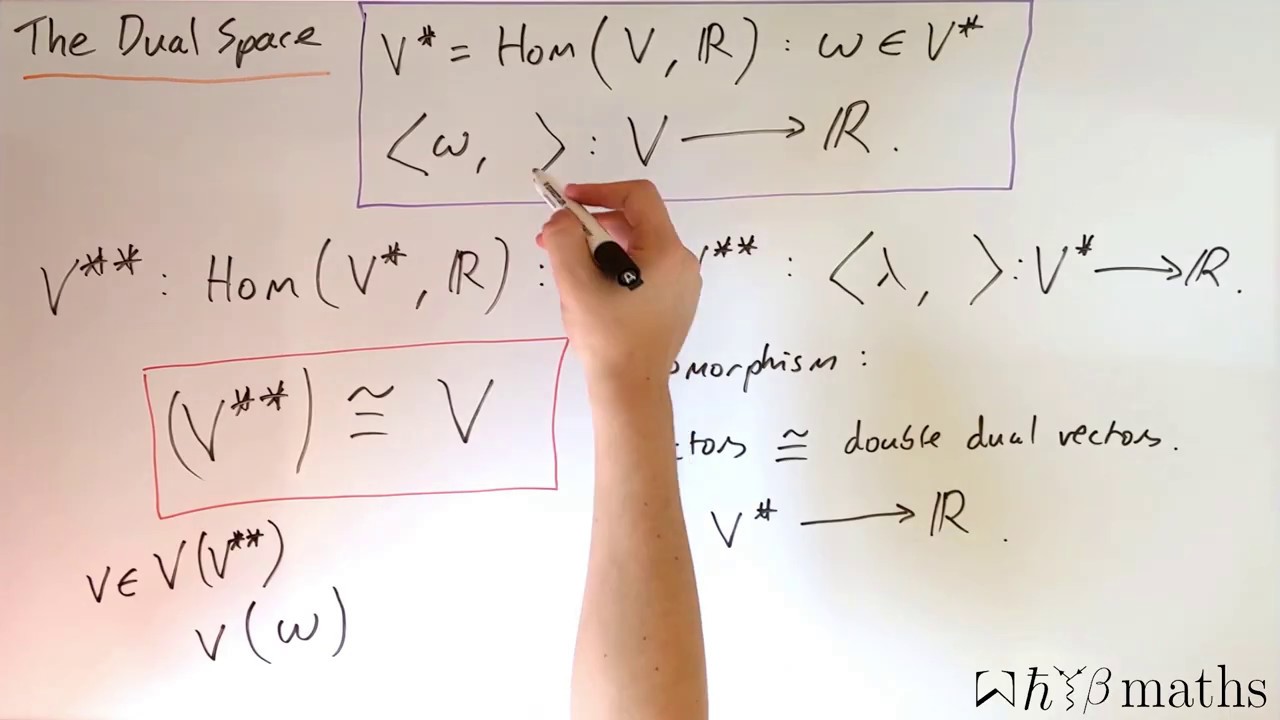 The Dual Space
V* = Hom(V, ℝ) : ω ∈ V*
⟨ω, ⟩ : V ⟶ ℝ.
V** : Hom(V*, ℝ) : V** : ⟨λ, ⟩ : V* ⟶ ℝ.
omorphism :
(V**) ≅ V
ctors ≅ double dual vectors.
V* ⟶ ℝ.
v ∈ V(V**)
v(ω)
maths